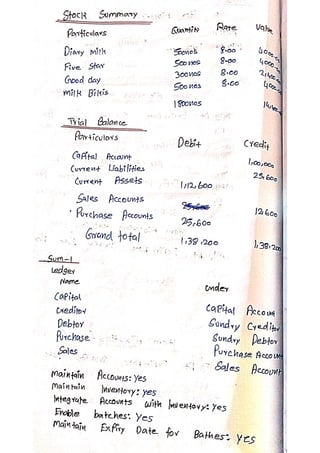 Stock Summary
Particulars Quantity Rate Value
Diary Milk 500nos 8.00 4000
Five Star 500nos 8.00 4000
Good day 300nos 8.00
Milk Bikis 500nos 8.00 4000
1800nos
Trial Balance
Particulars Debit Credit
Capital Account 1,00,000
Current Liabilities 25,600
Current Assets 1,12,600
Sales Accounts 12600
Purchase Accounts 25,600
Grand total 1,38,200 1,38,200
Sum-1
Ledger
Name Under
Capital Capital Account
Creditor Sundry Creditor
Debtor Sundry Debtor
Purchase Purchase Account
Sales Sales Account
Maintain Accounts: yes
Maintain Inventory: yes
Integrate Accounts with Inventory: yes
Enable batches: yes
Maintain Expiry Date for Bathes: yes